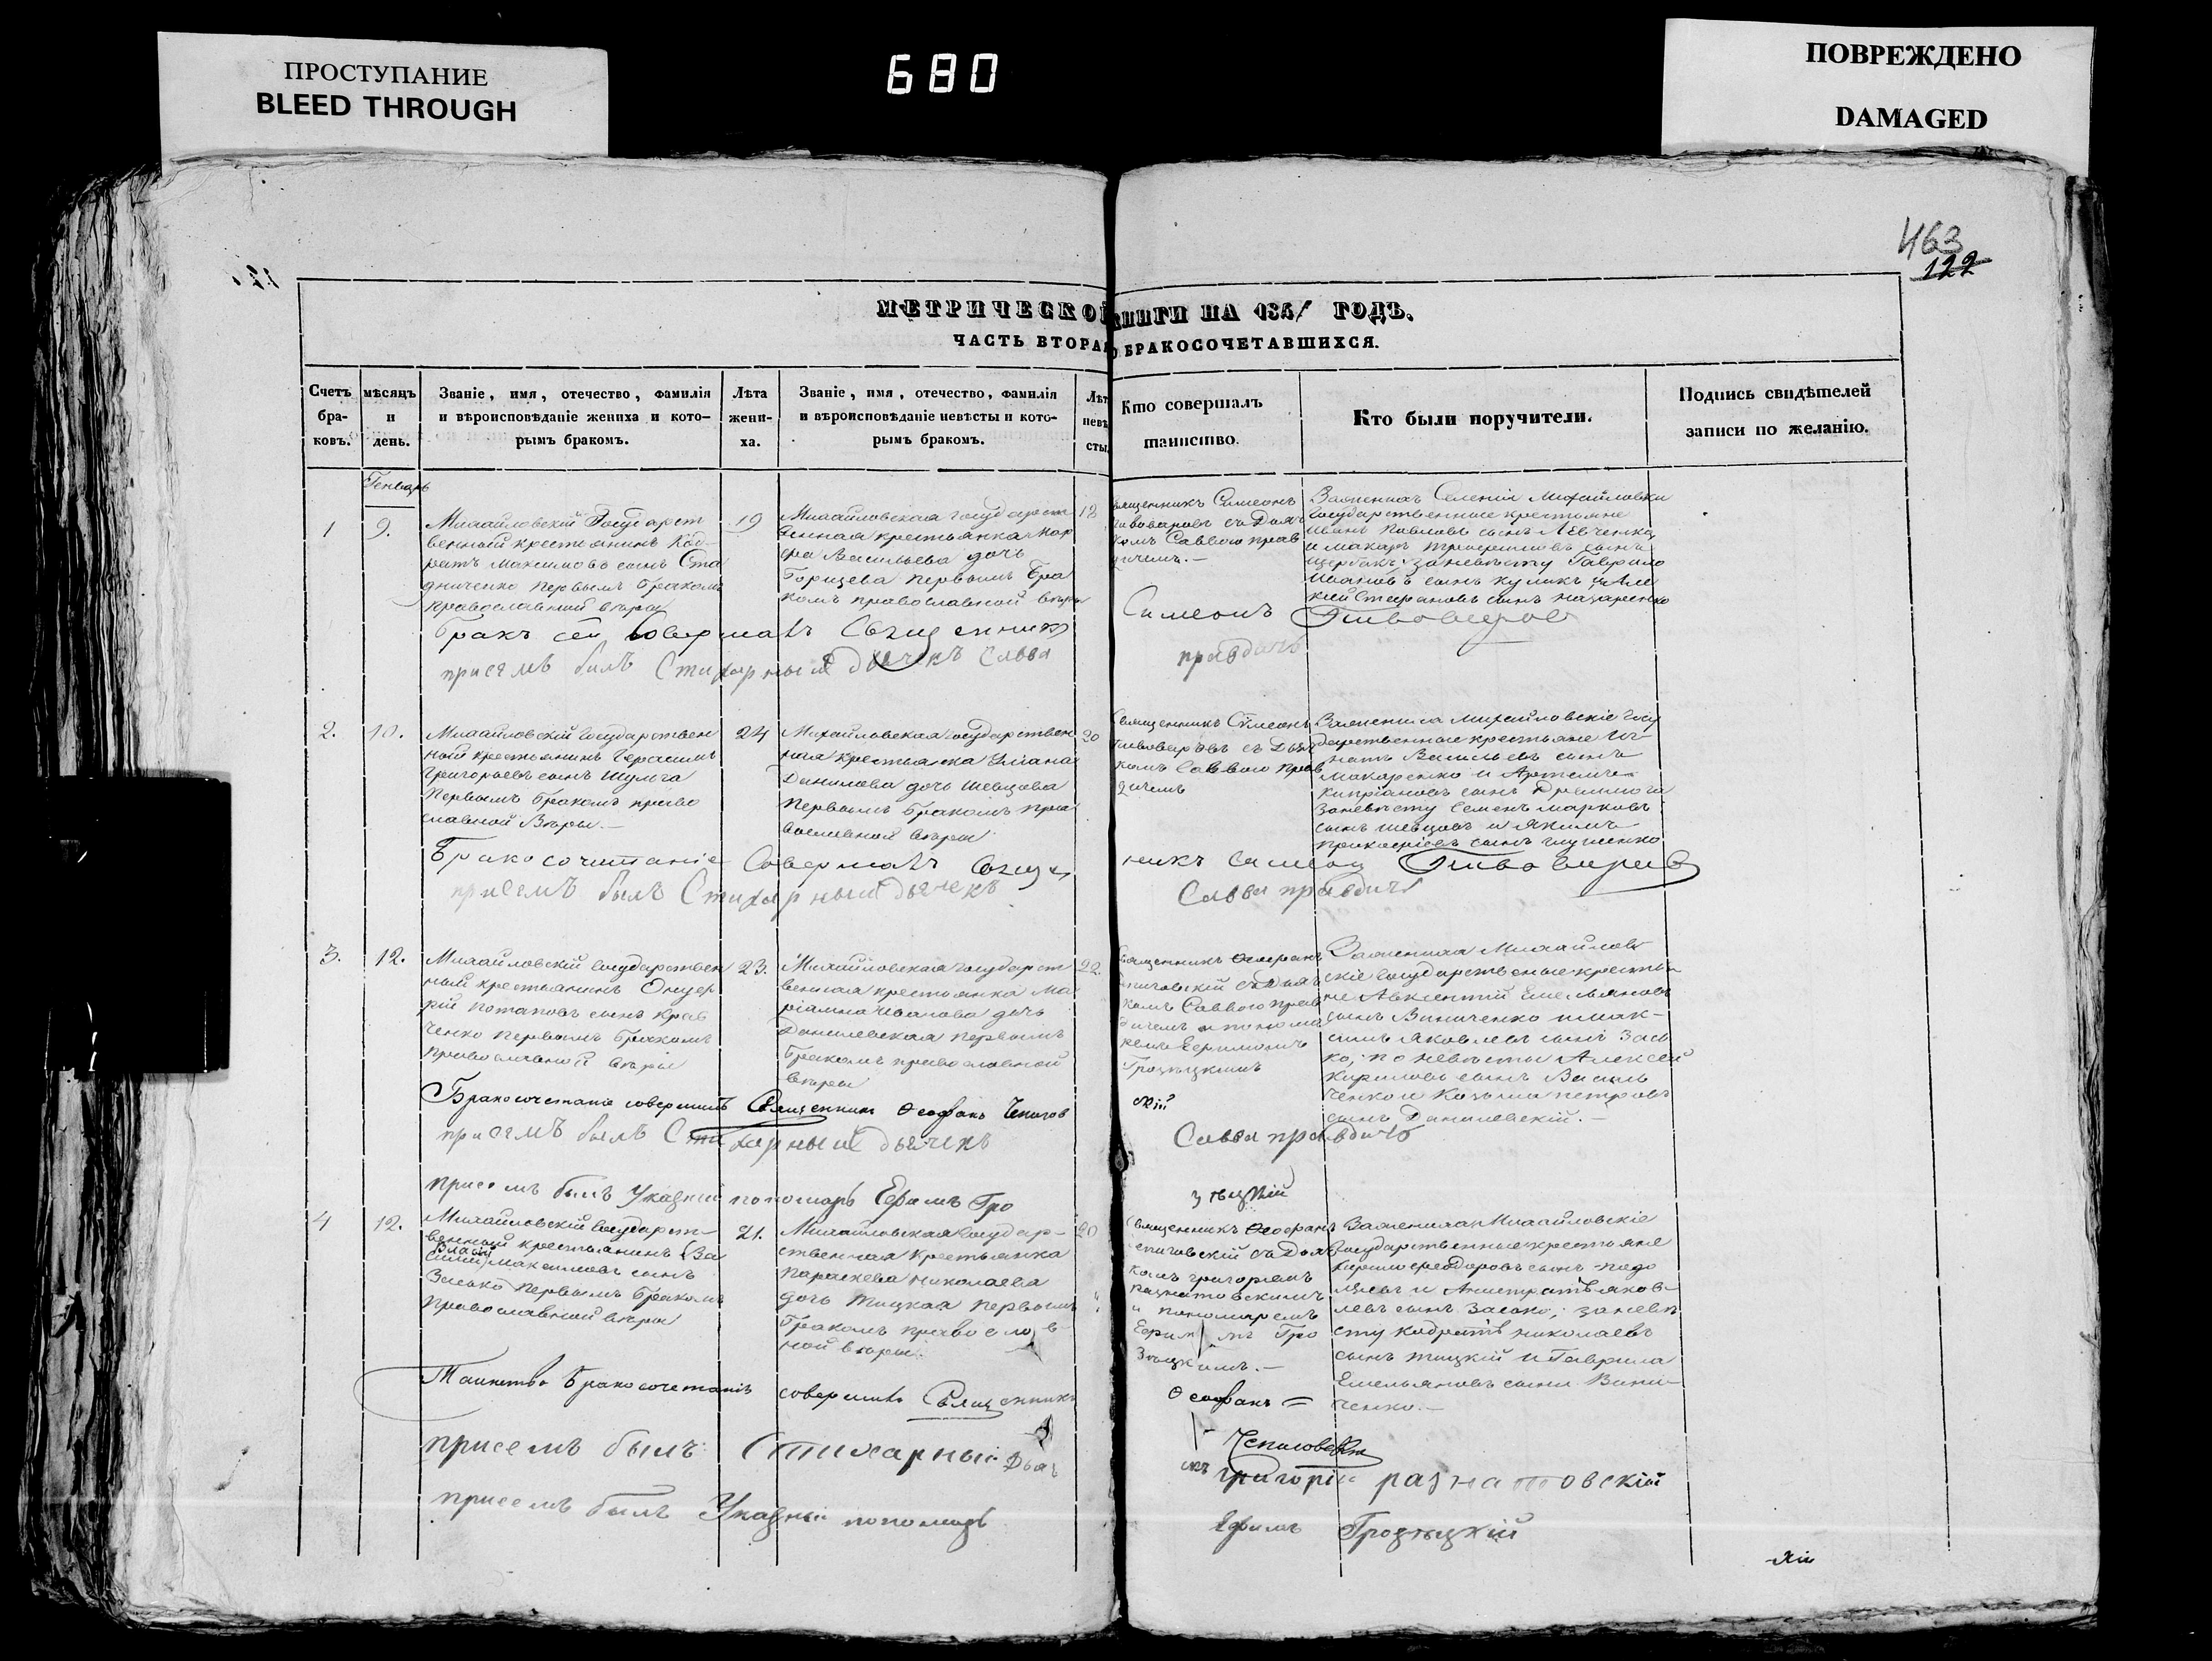 ПРОСТУПАНИЕ
BLEED THROUGH
680
ПОВРЕЖДЕНО
DAMAGED
463
122
МЕТРИЧЕСКОЙ КНИГИ НА 1841 ГОДЪ.
ЧАСТЬ ВТОРАЯ О БРАКОСОЧЕТАВШИХСЯ.
Счетъ бра- ковъ.
мѣсяцъ и день.
Званіе, имя, отечество, фамилія
и вѣроисповѣданіе жениха и кото-
рымъ бракомъ.
Лѣта жени- ха.
Званіе, имя, отечество, фамилія
и вѣроисповѣданіе невѣсты и кото-
рымъ бракомъ.
Лѣт невѣ сты
Кто совершалъ
таинство.
Кто были поручители.
Подпись свидѣтелей
записи по желанію.
Генварь
1
9.
Михайловскій Государст
венный крестьянинъ Код
ратъ Максимовъ сынъ Ста
дниченко первымъ бракомъ
православной вѣры
19
Михайловская государст
венная крестьянка
Васильева дочь
первымъ бра
комъ православной вѣры
Священникъ Симеонъ
Пивоваровъ съ Дьяч
комъ Саввою Прав
дичемъ.-
Государственные крестьяне
Иванъ Павловъ сынъ Левченко
и Макаръ сынъ
Щербакъ; за невѣсту Гаврило
Ивановъ сынъ Куликъ и Але
ксій Стефановъ сынъ Назаренко
Бракъ сей Совершалъ Священникъ Симеонъ Пивоваровъ
при семъ былъ Стихарный дьячекъ Савва правдичъ
2.
10.
Михайловскій Государствен
ный крестьянинъ Герасимъ
Григорьевъ сынъ Шульга
Первымъ бракомъ право
славной Вѣры.-
24
Михайловская государствен
ная крестьянка Уліана
Данилова дочь Шевцова
Первымъ бракомъ пра
вославной вѣры
20
Священникъ Симеонъ
Пивоваровъ съ Дьяч
комъ Саввою Прав
дичемъ
За жениха Михайловскіе госу
дарственные крестьяне Иг
натъ Васильевъ сынъ
Макаренко и Артемій
Кипріановъ сынъ
За невѣсту Семенъ Марковъ
сынъ Шевцовъ и Якимъ
Бракосочитаніе Совершалъ Священ
никъ Симеон Пивоваровъ
при семъ былъ Стихарный дьячекъ Савва правдичъ
3.
12.
Михайловскій государствен
ный крестьянинъ Онуф
рій Потаповъ сынъ Крав
ченко первымъ бракомъ
православной вѣры
23.
Михайловская государст
венная крестьянка Ма
ріамна Иванова дочь
Данилевская первымъ
бракомъ православной
вѣры
22.
Священникъ Ѳеофанъ
Чепиговскій съ Дьяч
комъ Саввою Прав
дичемъ и понома
ремъ Ефимомъ
Грозицкимъ
За жениха Михайлов
скіе государственные крестья
не Авксентій Емельяновъ
сынъ Виниченко и Мак-
симъ Яковлевъ сынъ Зась
ко; по невѣсты Алексей
Кириловъ сынъ Василь
ченко и Козьма Петровъ
сынъ Данилевскій.-
Бракосочетаніе совершилъ Священникъ Ѳеофанъ Чепигов
скій
при семъ былъ Стихарный дьячекъ
Савва правдичъ
при семъ былъ Указный пономарь Ефимъ Гро
зицкій
4
12.
Михайловскій государст-
венный крестьянинъ (Ва
Власій
силій) Максимовъ сынъ
Засько Первымъ бракомъ
православной вѣры
21.
Михайловская государ-
ственная крестьянка
Параскева Николаева
дочь Тицкая первымъ
бракомъ православ-
ной вѣры.
20
Священникъ Ѳеофанъ
Чепиговскій съ Дьяч
комъ Григоріемъ
Разнатовскимъ
и пономаремъ
Ефимомъ Гро
зицкимъ.-
За жениха Михайловскіе
государственные крестьяне
Кирило Ѳеодоровъ сынъ
и Яков-
левъ сынъ Засько; за невѣ
сту Кодратъ Николаевъ
сынъ Тицкій и Гаврила
Емельяновъ сынъ Вини-
ченко.-
Таинство Бракосочетанія совершилъ Священникъ
Ѳеофанъ =
Чепиговскій
при семъ былъ Стихарный Дьяч
екъ Григорій Разнатовскій
при семъ былъ Указный пономарь
Ефимъ Грозицкій